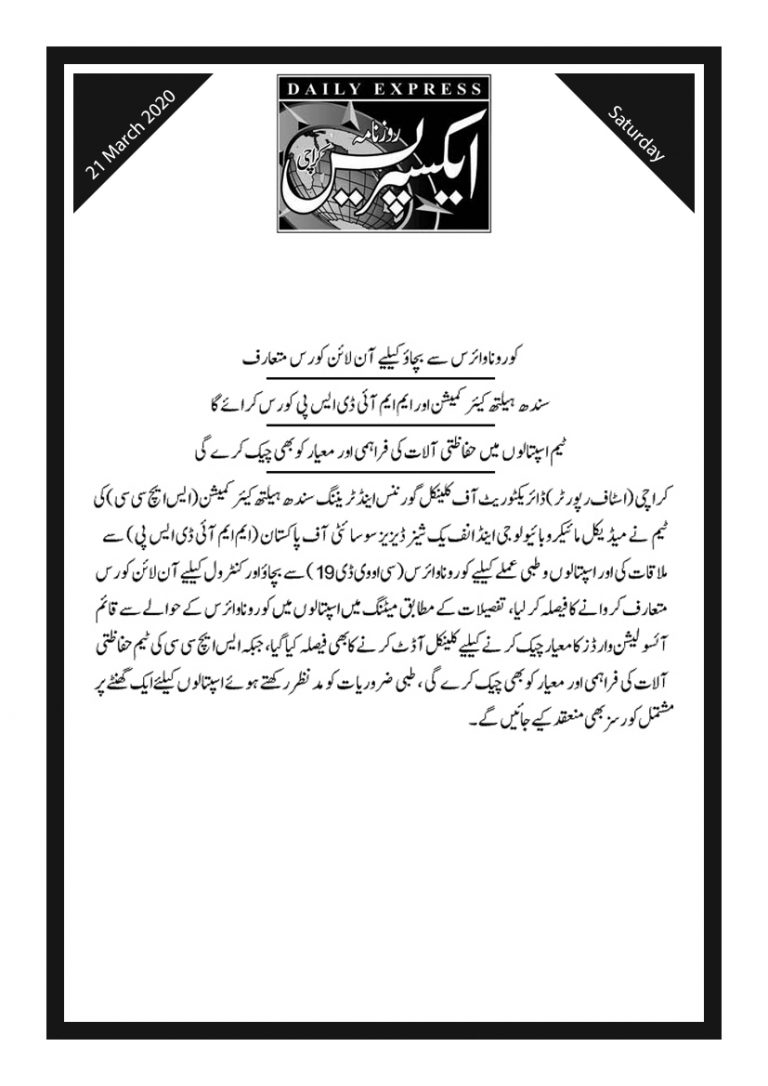 21 March 2020
DAILY EXPRESS
روزنامہ
ایکسپریس
کراچی
Saturday
کوروناوائرس سے بچاؤ کیلیے آن لائن کورس متعارف
سندھ ہیلتھ کیئر کمیشن اور ایم ایم آئی ڈی ایس پی کورس کرائے گا
ٹیم اسپتالوں میں حفاظتی آلات کی فراہمی اور معیار کو بھی چیک کرے گی
کراچی (اسٹاف رپورٹر) ڈائریکٹوریٹ آف کلینکل گورننس اینڈ ٹریننگ سندھ ہیلتھ کیئر کمیشن (ایس ایچ سی سی) کی
ٹیم نے میڈیکل مائیکروبائیولوجی اینڈ انفیک شیز ڈیزیز سوسائٹی آف پاکستان (ایم ایم آئی ڈی ایس پی) سے
ملاقات کی اور اسپتالوں و طبی عملے کیلیے کوروناوائرس (سی او وی ڈی 19) سے بچاؤ اور کنٹرول کیلیے آن لائن کورس
متعارف کروانے کا فیصلہ کر لیا، تفصیلات کے مطابق میٹنگ میں اسپتالوں میں کوروناوائرس کے حوالے سے قائم
آئسولیشن وارڈز کا معیار چیک کرنے کیلیے کلینکل آڈٹ کرنے کا بھی فیصلہ کیا گیا، جبکہ ایس ایچ سی سی کی ٹیم حفاظتی
آلات کی فراہمی اور معیار کو بھی چیک کرے گی، طبی ضروریات کو مد نظر رکھتے ہوئے اسپتالوں کیلئے ایک گھنٹے پر
مشتمل کورسز بھی منعقد کیے جائیں گے۔